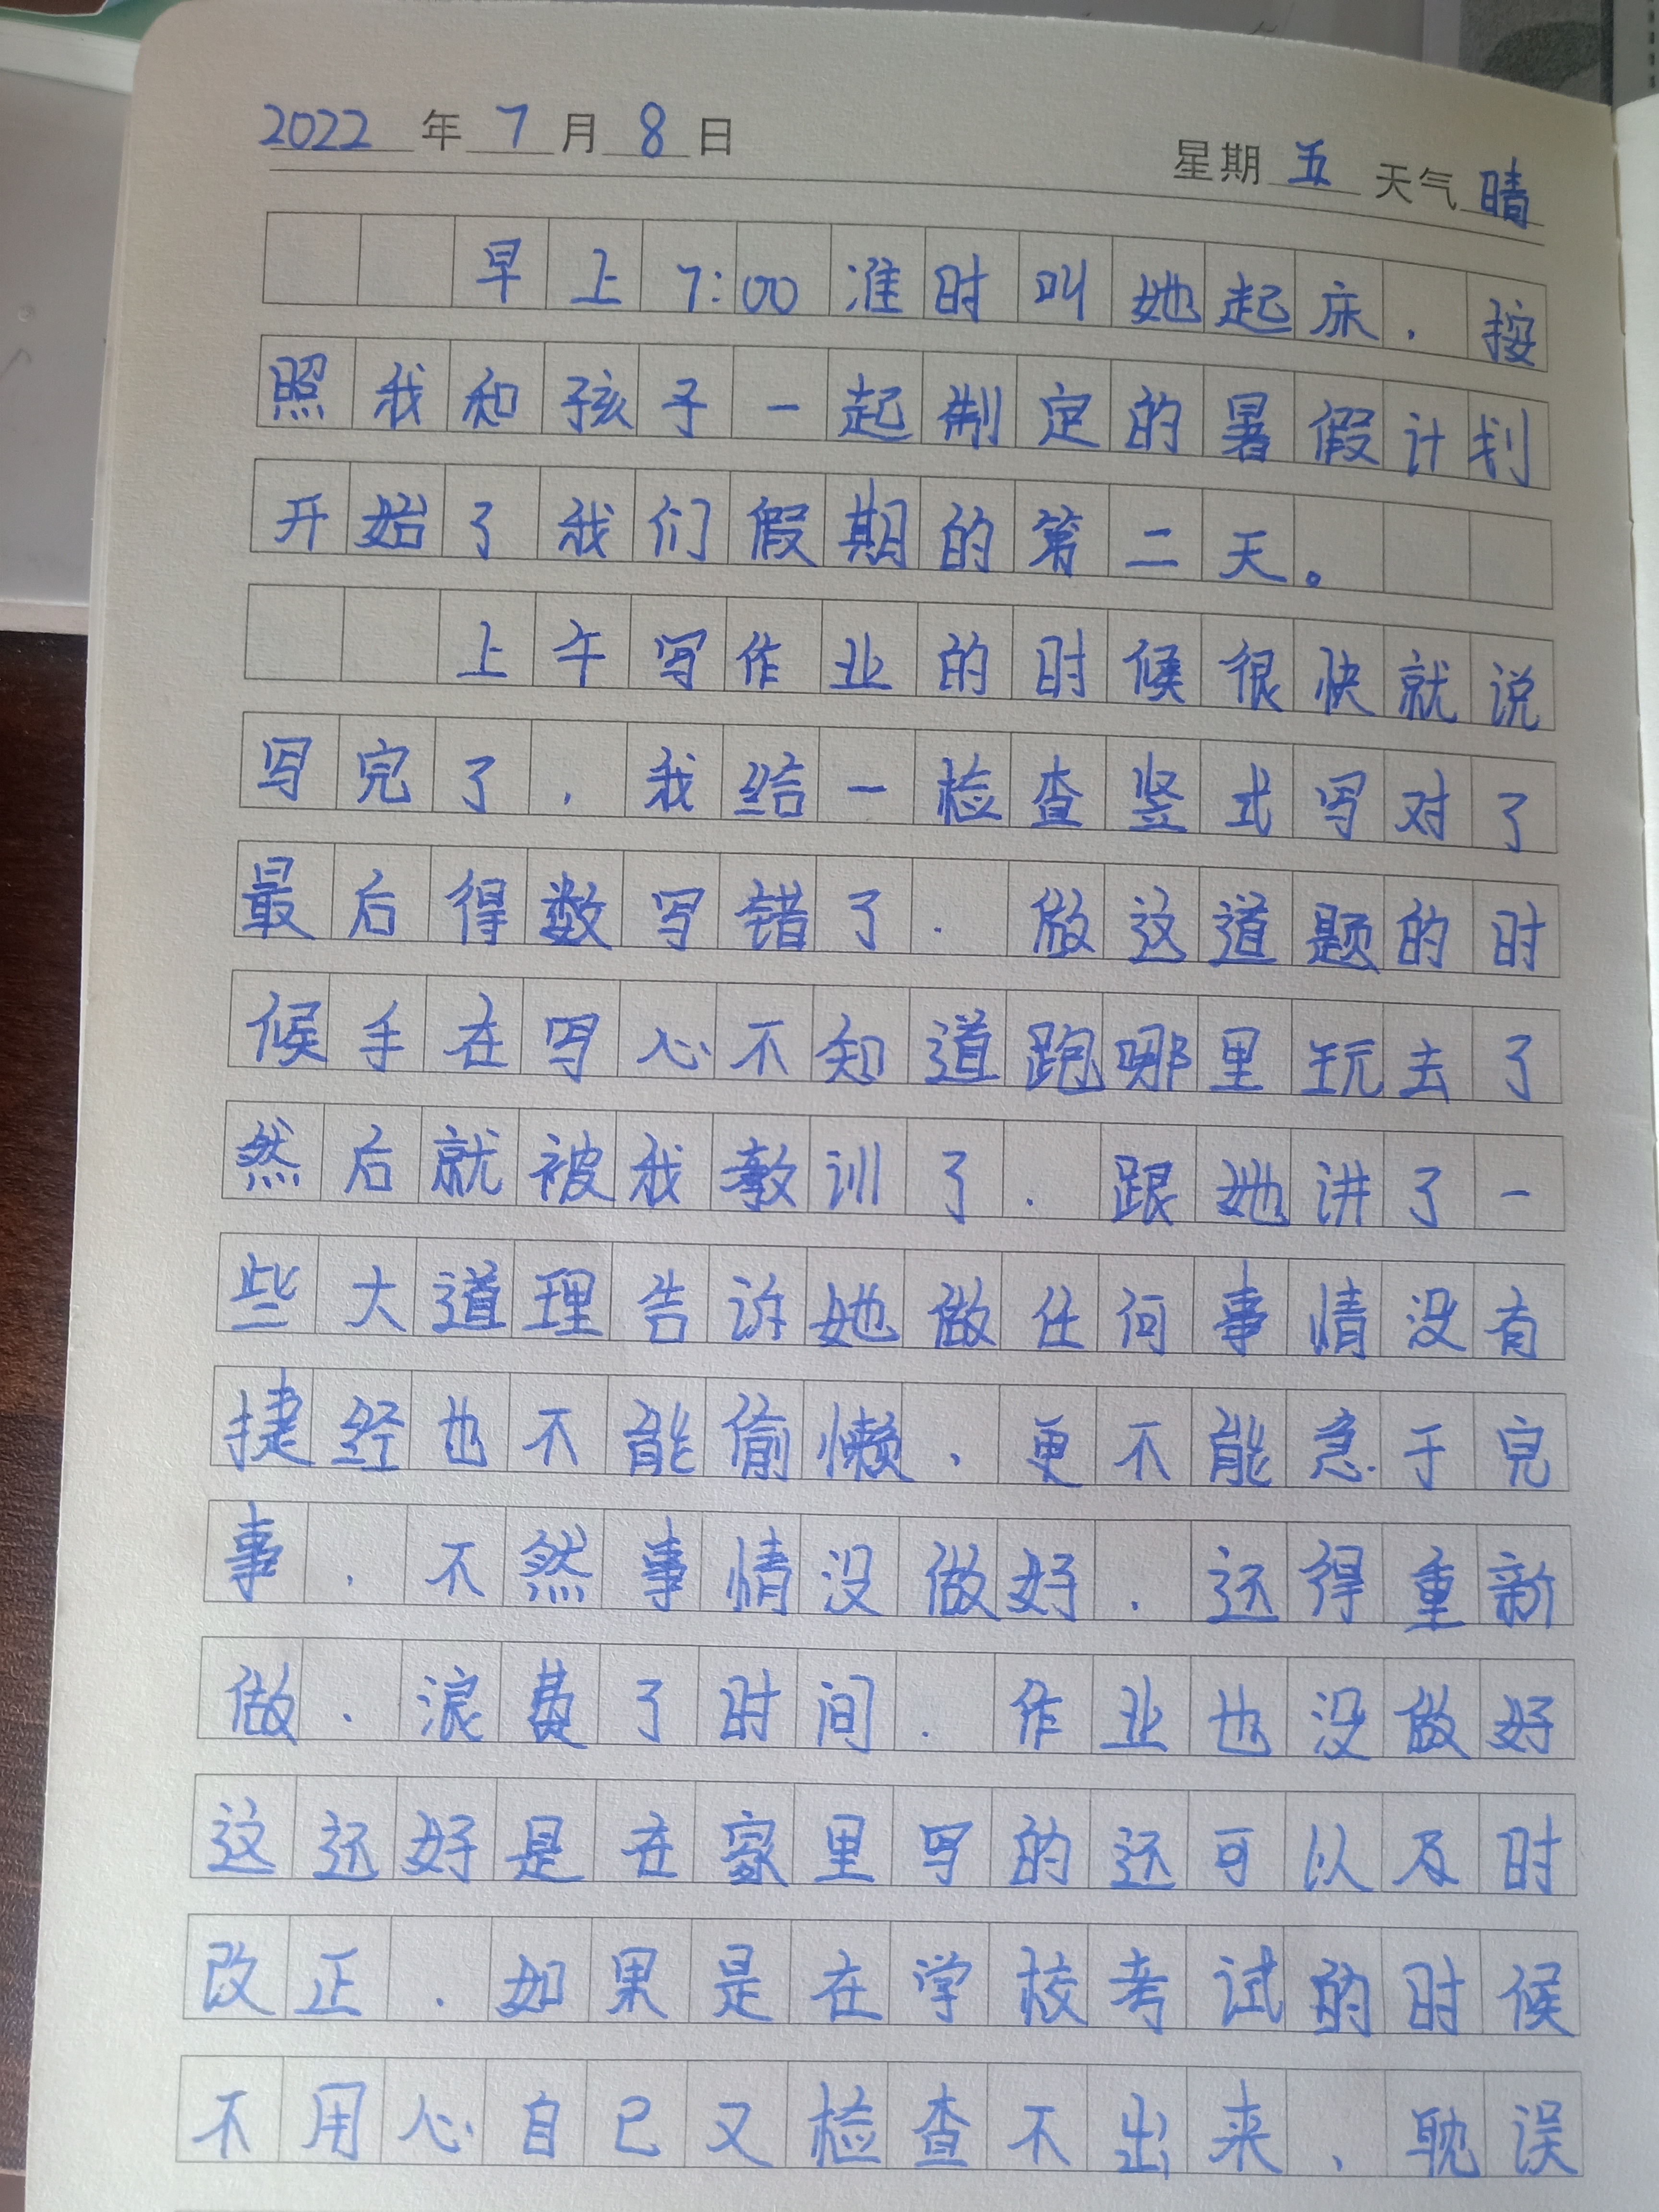 2022年7月8日 星期五 天气晴
早上7:00准时叫她起床，按
照我和孩子一起制定的暑假计划
开始了我们假期的第二天。
上午写作业的时候很快就说
写完了，我给一检查竖式写对了
最后得数写错了．做这道题的时
候手在写心不知道跑哪里玩去了
然后就被我教训了．跟她讲了一
些大道理告诉她做任何事情没有
捷经也不能偷懒，更不能急于完
事，不然事情没做好．还得重新
做．浪费了时间．作业也没做好
这还好是在家里写的还可以及时
改正．如果是在学校考试的时候
不用心自己又检查不出来、耽误